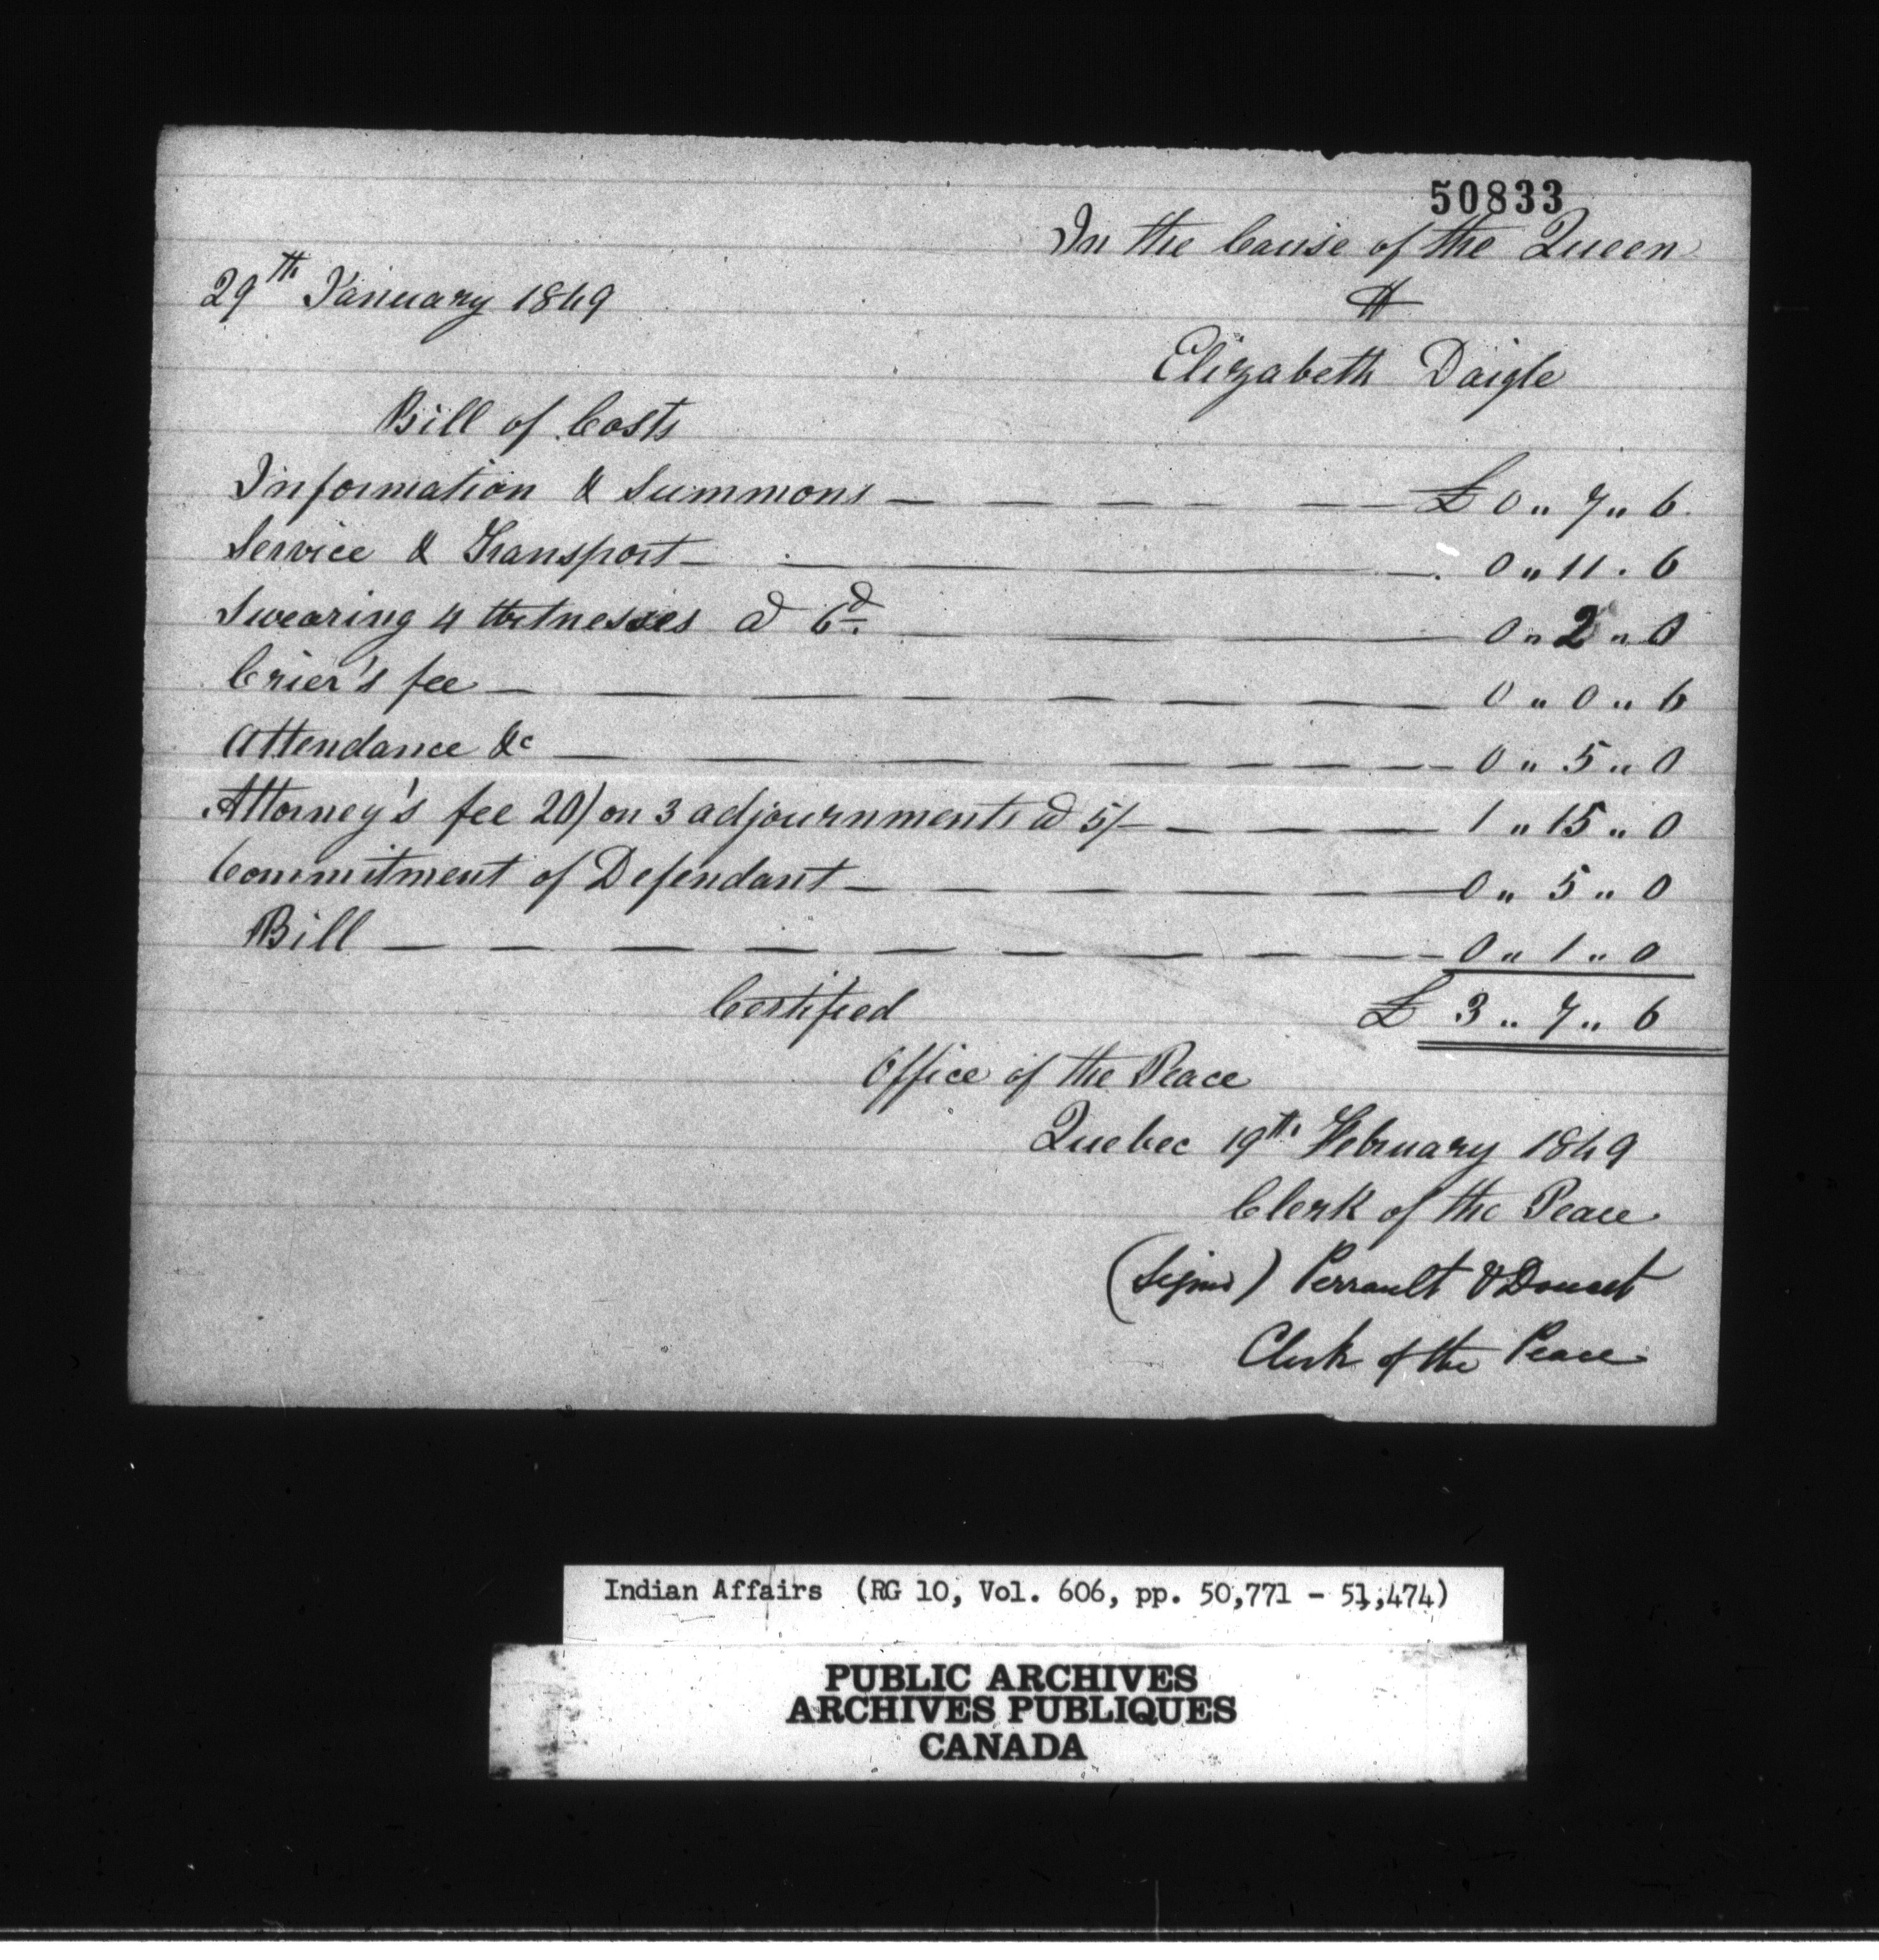 50833
In the Cause of the Queen
29th January 1849
vs
Elizabeth Daigle
Bill of Costs
Information & Summons — — — — — — £ 0 " 7 " 6.
Service & Transport — . — — . 0 " 11 . 6
Swearing 4 Witnesses @ 6d. — — — 0 " 2 " 0
Crier's fee — — — — — — — 0 " 0 " 6
Attendance &c — — — — — — — — 0 " 5 " 0
Attorney's fee 20/ on 3 adjournments @ 5/- — — — — 1 " 15 " 0
Commitment of Defendant — — — — — — 0 " 5 " 0
Bill — — — — — — — — — — 0 " 1 " 0
Certified £ 3 " 7 " 6
Office of the Peace
Quebec 19th February 1849
Clerk of the Peace
(Signed) Perrault & Doucet
Clerk of the Peace
Indian Affairs (RG 10, Vol. 606, pp. 50,771 - 51,474)
PUBLIC ARCHIVES
ARCHIVES PUBLIQUES
CANADA